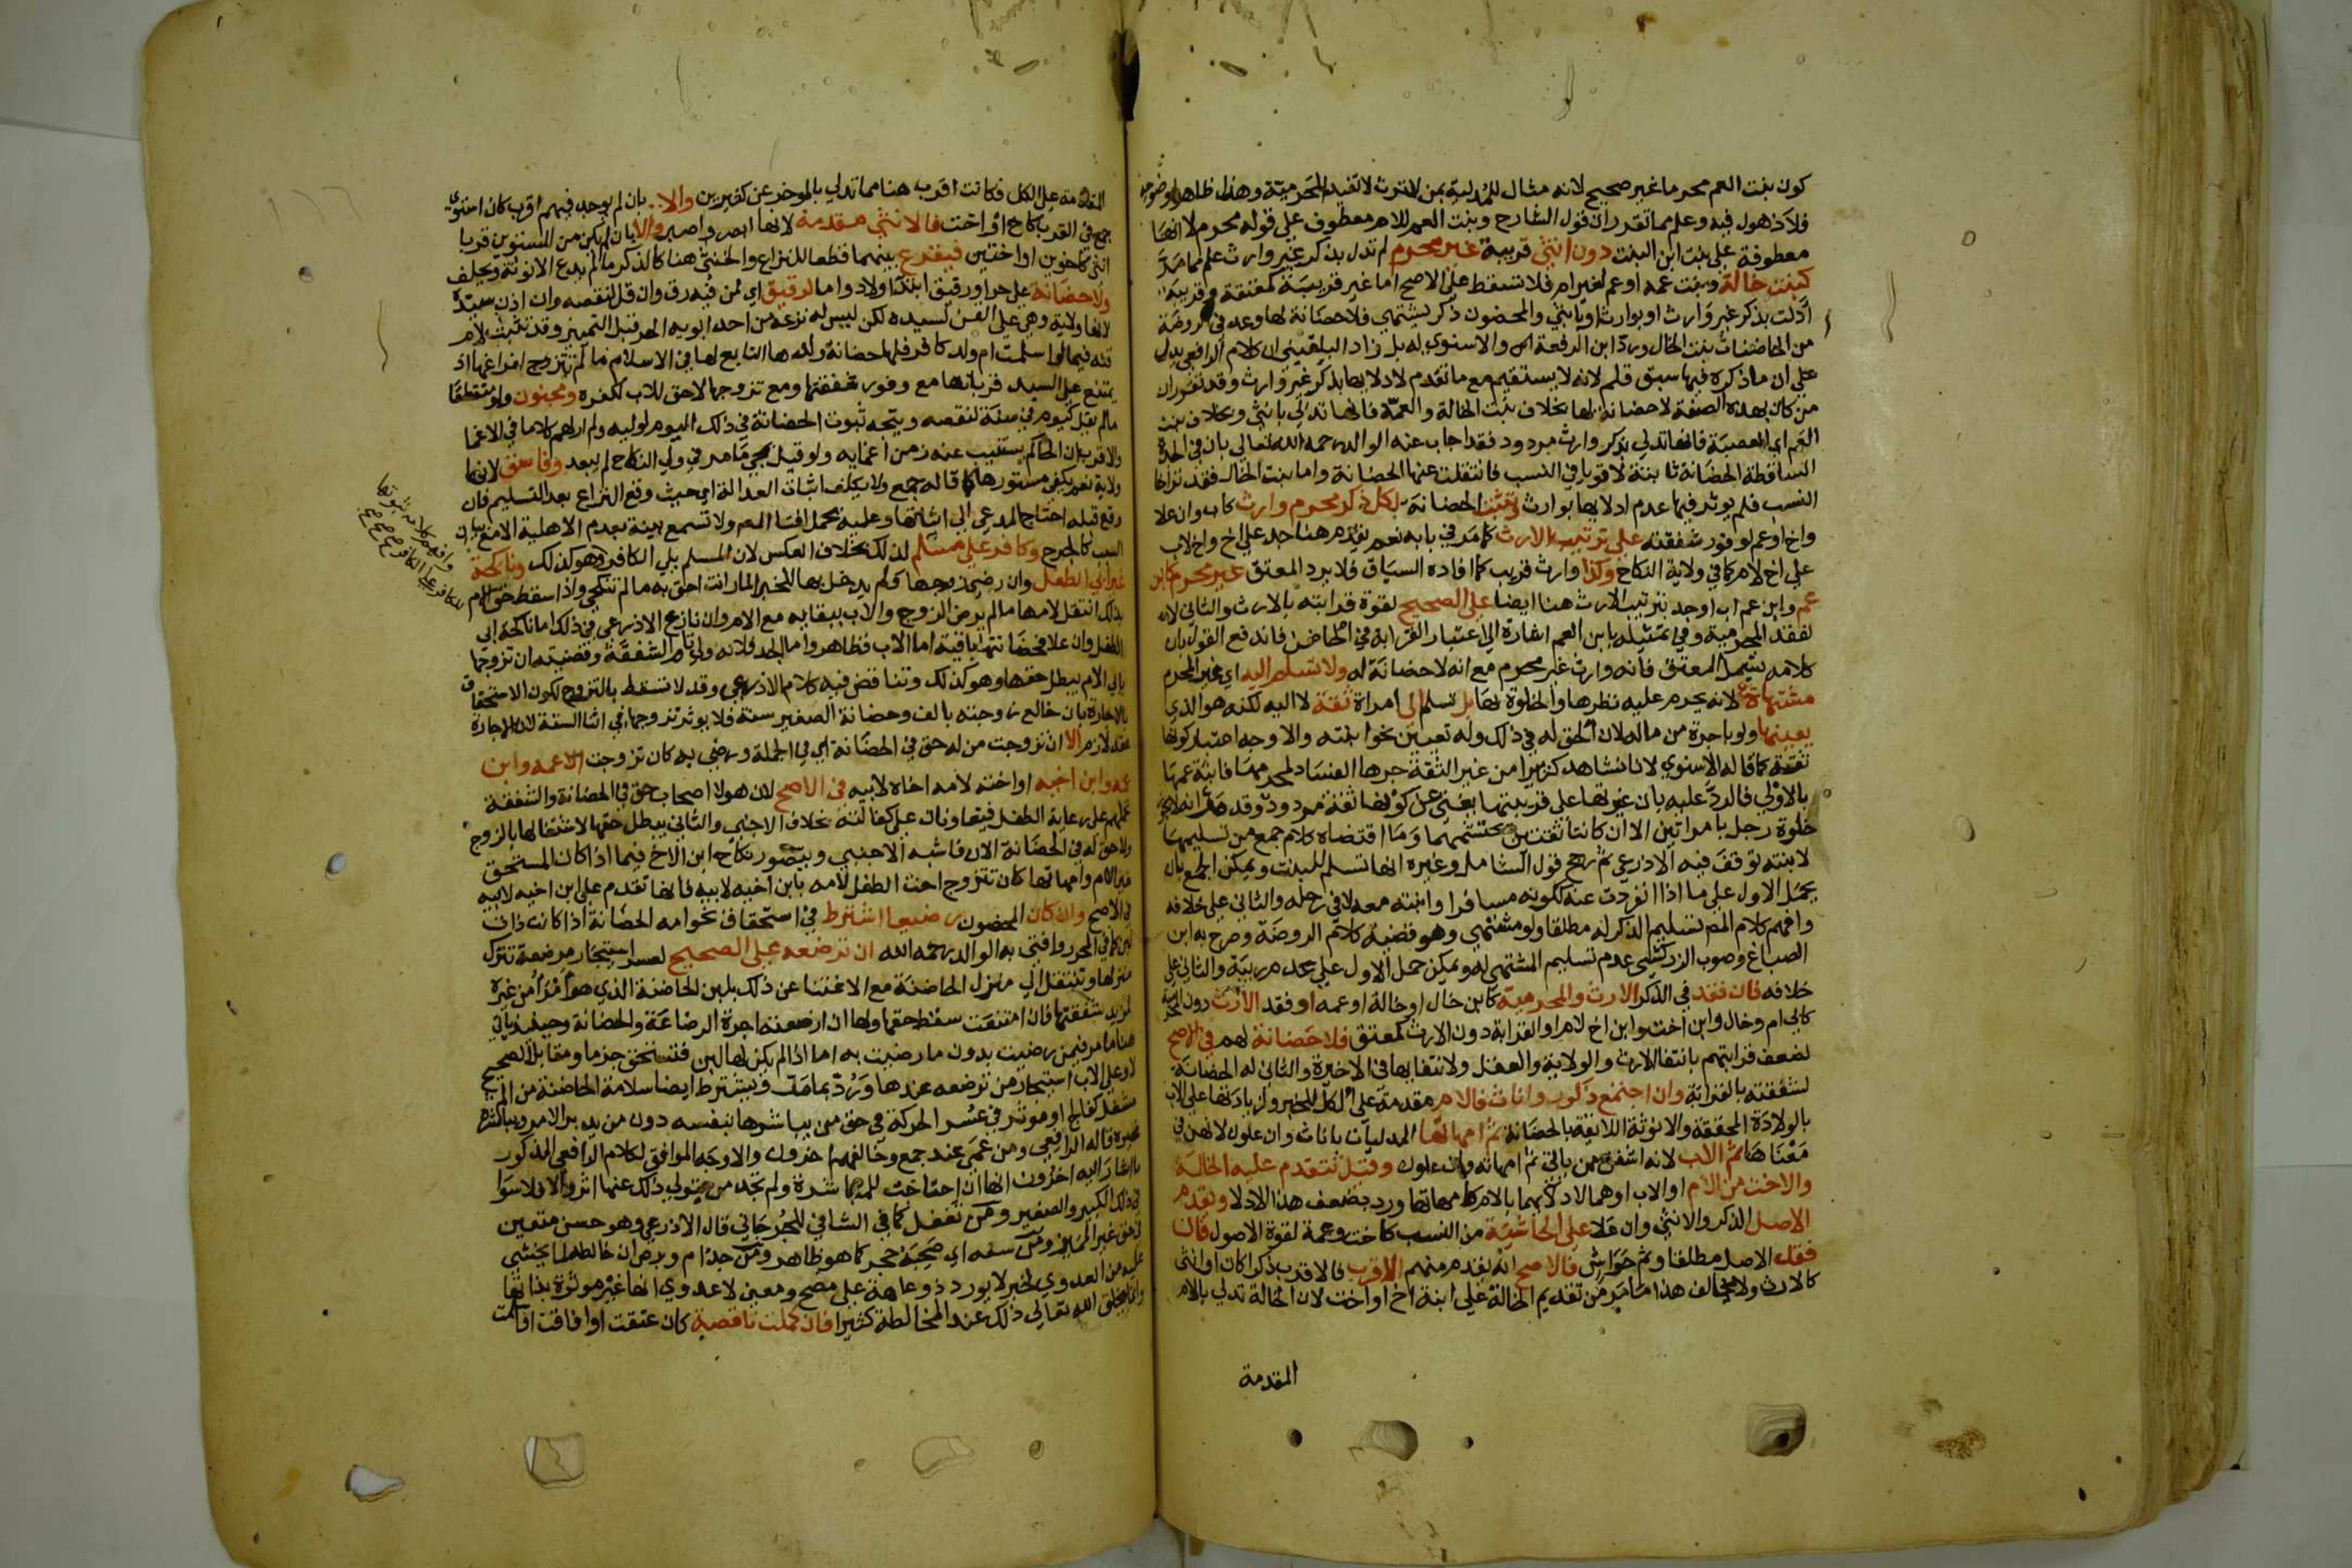 كون بنت العم محرما غير صحيح لانه مثال للمدلية بمن لا ترث لا بقيد المحرمية وهذا ظاهر لوضوحه
فلا ذهول فيه وعلم مما تقرر ان قول الشارح وبنت العم للام معطوف على قوله محرم لا انها
معطوفة على بنت ابن البنت دون انثى قريبة غير محرم لم تدل بذكر غير وارث علم مما مر
كبنت خالة وبنت عمة او عم لغير ام فلا تسقط على الاصح اما غير قريبة كمعتقة وقريبة
ادلت بذكر غير وارث او بوارث او بانثى والمحضون ذكر يشتهي فلا حضانة لها وعده في الروضة
من الحاضنات بنت الخال ورده ابن الرفعة والاسنوي بل زاد البلقيني ان كلام الرافعي يدل
على ان ما ذكره فيها سبق قلم لانه لا يستقيم مع ما تقدم لادلائها بذكر غير وارث وقد تقرر ان
من كان بهذه الصفة لا حضانة لها بخلاف بنت الخالة والعمة فانها تدلي بانثى وبخلاف بنت
العم اي العصبة فانها تدلي بذكر وارث مردود فقد اجاب عنه الوالد رحمه الله تعالى بان في الجدة
الساقطة الحضانة ثابتة لاقوياء في النسب فانتقلت عنها الحضانة واما بنت الخال فقد تراخا
النسب فلم يوثر فيها عدم ادلائها بوارث وتثبت الحضانة لكل ذكر محرم وارث كاب وان علا
واخ او عم لوفور شفقته على ترتيب الارث كما مر في بابه نعم يقدم هنا جد على اخ واخ لاب
على اخ لام كما في ولاية النكاح وكذا وارث قريب كما افاده السياق فلا يرد المعتق غير محرم كابن
عم وابن عم اب او جد بترتيب الارث هنا ايضا على الصحيح لقوة قرابته بالارث والثاني لا
لفقد المحرمية وفي تمثيله بابن العم اشارة الى اعتبار القرابة في الحاضن فاندفع القول بان
كلامه يشمل المعتق فانه وارث غير محرم مع انه لا حضانة له ولا تسلم اليه اي غير المحرم
مشتهاة لانه يحرم عليه نظرها والخلوة بها بل تسلم الى امراة ثقة لا اليه لكنه هو الذي
يعينها ولو باجرة من ماله لان الحق له في ذلك وله تعيين نحو ابنته والاوجه اعتبار كونها
ثقة كما قاله الاسنوي لانا نشاهد كثيرا من غير الثقة جرها الفساد لمحرمها فابنة عمها
بالاولى فالرد عليه بان غيرتها على قريبتها يغني عن كونها ثقة مردود وقد مر انه لا يجوز
خلوة رجل بامراتين الا ان كانتا ثقتين يحتشمهما وما اقتضاه كلام جمع من تسليمها
لابنته توقف فيه الاذرعي ثم رجح قول الشامل وغيره انها تسلم للبنت ويمكن الجمع بان
يحمل الاول على ما اذا انفردت عنه ككونه مسافرا وابنته معه لا في رحله والثاني على خلافه
وافهم كلام المص تسليم الذكر له مطلقا ولو مشتهى وهو قضية كلام الروضة وصرح به ابن
الصباغ وصوب الزركشي عدم تسليم المشتهى له ويمكن حمل الاول على عدم ريبة والثاني على
خلافه فان فقد في الذكر الارث والمحرمية كابن خال او خالة او عمه او فقد الارث دون المحرمية
كابي ام وخال وابن اخت وابن اخ لام او القرابة دون الارث كمعتق فلا حضانة لهم في الاصح
لضعف قرابتهم بانتفاء الارث والولاية والعقل ولانتفائها في الاخيرة والثاني له الحضانة
لشفقته بالقرابة وان اجتمع ذكور واناث فالام مقدمة على الكل للخبر ولزيادتها على الاب
بالولادة المحققة والانوثة اللائقة بالحضانة ثم امهاتها المدليات باناث وان علون لانهن في
معناها ثم الاب لانه اشفق ممن ياتي ثم امهاته وان علون وقيل تتقدم عليه الخالة
والاخت من الام او الاب او هما لادلائهما بالام كامهاتها ورد بضعف هذا الادلاء ويقدم
الاصل الذكر والانثى وان علا على الحاشية من النسب كاخت وعمة لقوة الاصول فان
فقد الاصل مطلقا وثم حواش فالاصح انه يقدم منهم الاقرب فالاقرب ذكرا كان او انثى
كالارث ولا يخالف هذا ما مر من تقديم الخالة على ابنة اخ او اخت لان الخالة تدلي بالام
المقدمة
المقدمة على الكل فكانت اقرب هنا مما تدلي بالموخر عن كثيرين والا بان لم يوجد فيهم اقرب كان استوى
جمع في القرب كاخ او اخت فالانثى مقدمة لانها ابصر واصبر والا بان لم يكن من المستويين قربا
انثى كاخوين او اختين فيقرع بينهما قطعا للنزاع والخنثى هنا كالذكر ما لم يدع الانوثة ويحلف
ولا حضانة على حر او رقيق ابتداء ولا دواما لرقيق اي لمن فيه رق وان قل لنقصه وان اذن سيده
لانها ولاية وهي على القن لسيده لكن ليس له نزعه من احد ابويه الحر قبل التمييز وقد تثبت لام
قنة فيما لو اسلمت ام ولد كافر فلها حضانة ولدها التابع لها في الاسلام ما لم تتزوج لفراغها اذ
يمتنع على السيد قربانها مع وفور شفقتها ومع تزوجها لا حق للاب لكفره ومجنون ولو متقطعا
ما لم يقل كيوم في سنة لنقصه ويتجه ثبوت الحضانة في ذلك اليوم لوليه ولم ار لهم كلاما في الاغما
والاقرب ان الحاكم يستنيب عنه زمن اغمائه ولو قيل بمجي ما مر في ولي النكاح لم يبعد وفاسق لانها
ولاية نعم يكفي مستورها كما قاله جمع ولا يكلف اثبات العدالة اي حيث وقع النزاع بعد التسليم فان
وقع قبله احتاج المدعي الى اثباتها وعليه يحمل افتاء المص ولا تسمع بينة بعدم الاهلية الا مع بيان
السبب كالجرح وكافر على مسلم لذلك بخلاف العكس لان المسلم يلي الكافر وهو كذلك وناكحة
غير ابي الطفل وان رضي زوجها ولم يدخل بها للخبر المار انت احق به ما لم تنكحي واذا سقط حق الام
بذلك انتقل لامها ما لم يرض الزوج والاب ببقائه مع الام وان نازع الاذرعي في ذلك اما ناكحة ابي
الطفل وان علا فحضانتها باقية اما الاب فظاهر واما الجد فلانه ولي تام الشفقة وقضيته ان تزوجها
بابي الام يبطل حقها وهو كذلك وتناقض فيه كلام الاذرعي وقد لا تسقط بالتزوج لكون الاستحقاق
بالاجارة بان خالع زوجته بالف وحضانة الصغير سنة فلا يوثر تزوجها في اثنا السنة لان الاجارة
عقد لازم الا ان تزوجت من له حق في الحضانة اي في الجملة ورضي به كان تزوجت عمه وابن
عمه وابن اخيه او اخته لامه اخاه لابيه في الاصح لان هولا اصحاب حق في الحضانة والشفقة
تحملهم على رعاية الطفل فيتعاونان على كفالته بخلاف الاجنبي والثاني يبطل حقها لاشتغالها بالزوج
ولا حق له في الحضانة الان فاشبه الاجنبي ويتصور نكاح ابن الاخ فيما اذا كان المستحق
غير الام وامهاتها كان تتزوج اخت الطفل لامه بابن اخيه لابيه فانها تقدم على ابن اخيه لابيه
في الاصح وان كان المحضون رضيعا اشترط في استحقاق نحو امه الحضانة اذا كانت ذات
لبن كما في المحرر وافتى به الوالد رحمه الله ان ترضعه على الصحيح لعسر استيجار مرضعة تترك
منزلها وتنتقل الى منزل الحاضنة مع الاغتنا عن ذلك بلبن الحاضنة الذي هو امرا من غيره
لمزيد شفقتها فان امتنعت سقط حقها ولها ان ارضعته اجرة الرضاعة والحضانة وحينئذ ياتي
هنا ما مر فيمن رضيت بدون ما رضيت به اما اذا لم يكن لها لبن فتستحق جزما ومقابل الصحيح
لا وعلى الاب استيجار من ترضعه عندها ورد بما مر ويشترط ايضا سلامة الحاضنة من الم
مشغل كفالج او موثر في عسر الحركة في حق من يباشرها بنفسه دون من يدبر الامر ويباشره
غيره قاله الرافعي ومن عمى عند جمع وخالفهم اخرون والاوجه الموافق لكلام الرافعي المذكور
ما اشار اليه اخرون انها ان احتاجت للمباشرة ولم تجد من يتولى ذلك عنها اثر والا فلا سوا
في ذلك الكبير والصغير ومن تغفل كما في الشافي للجرجاني قال الاذرعي وهو حسن متعين
في حق غير المميز ومن سفه اي صحبه حجر كما هو ظاهر ومن جذام وبرص ان خالطه لما يخشى
عليه من العدوى لخبر لا يورد ذو عاهة على مصح ومعنى لا عدوى انها غير موثرة بذاتها
وانما يخلق الله تعالى ذلك عند المخالطة كثيرا فان كملت ناقصة كان عتقت او افاقت او اسلمت
وافهم كلامه ثبوتها
للكافر على الكافر صح